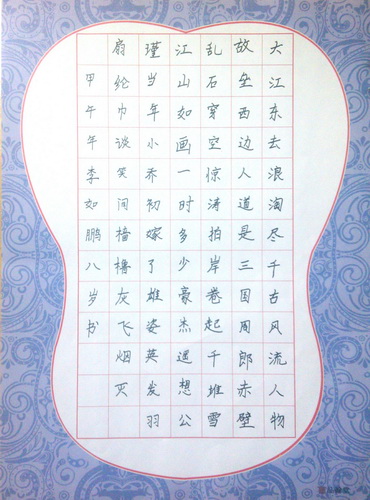 大江东去浪淘尽千古风流人物
故垒西边人道是三国周郎赤壁
乱石穿空惊涛拍岸卷起千堆雪
江山如画一时多少豪杰遥想公
瑾当年小乔初嫁了雄姿英发羽
扇纶巾谈笑间樯橹灰飞烟灭
甲午年李如鹏八岁书